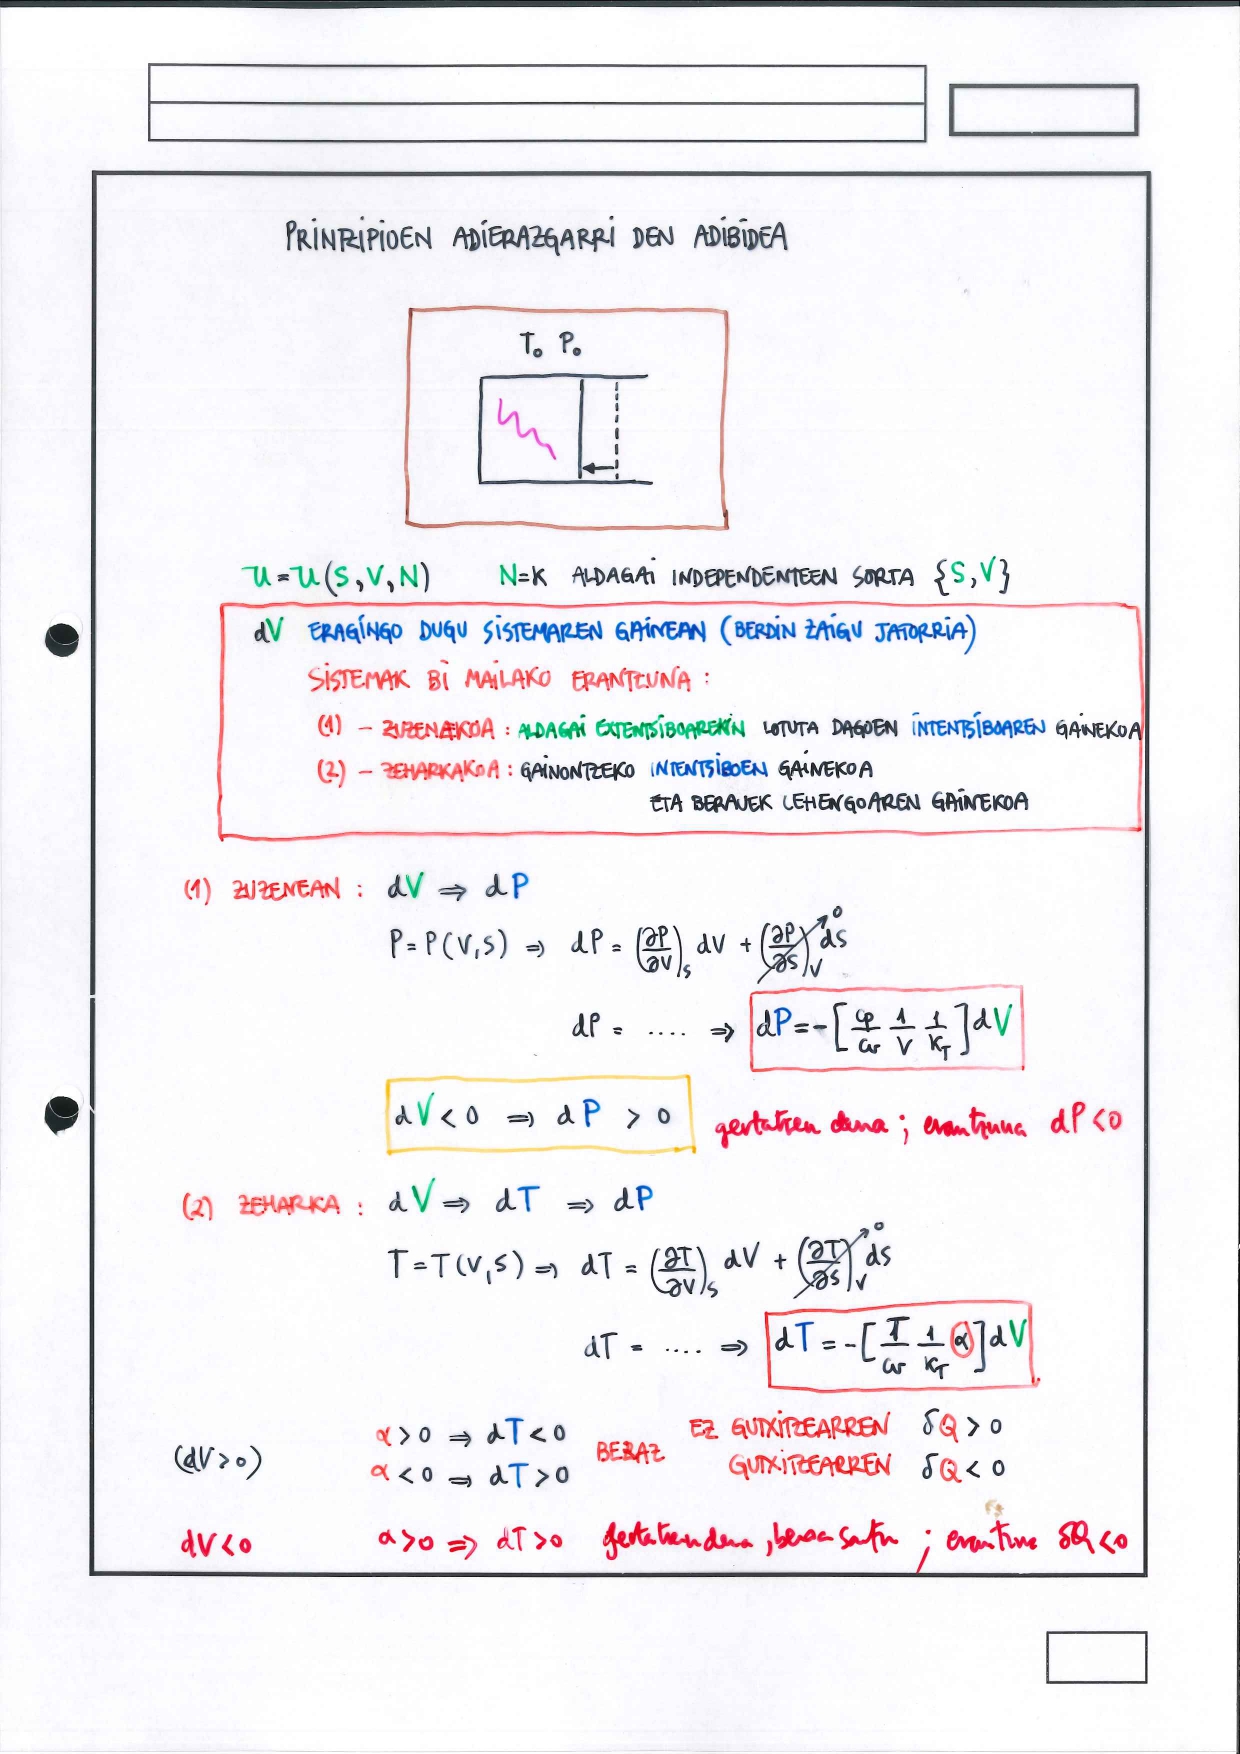 PRINTZIPIOEN ADIERAZGARRI DEN ADIBIDEA
T₀ P₀
U=U(S,V,N) N=K ALDAGAI INDEPENDENTEEN SORTA {S,V}
dV ERAGINGO DUGU SISTEMAREN GAINEAN (BERDIN ZAIGU JATORRIA)
SISTEMAK BI MAILAKO ERANTZUNA :
(1) - ZUZENAKOA : ALDAGAI EXTENTSIBOAREKIN LOTUTA DAGOEN INTENTSIBOAREN GAINEKOA
(2) - ZEHARKAKOA : GAINONTZEKO INTENTSIBOEN GAINEKOA
ETA BERAUEK LEHENGOAREN GAINEKOA
(1) ZUZENEAN : dV ⇒ dP
P=P(V,S) ⇒ dP = (∂P/∂V)_S dV + (∂P/∂S)_V dS ↗0
dP = .... ⇒ dP = -[cp/cv 1/V 1/K_T] dV
dV < 0 ⇒ dP > 0 gertatzen dena ; erantzuna dP <0
(2) ZEHARKA : dV ⇒ dT ⇒ dP
T=T(V,S) ⇒ dT = (∂T/∂V)_S dV + (∂T/∂S)_V dS ↗0
dT = .... ⇒ dT = -[T/cv 1/K_T α] dV
(dV>0) α>0 ⇒ dT<0 BERAZ EZ GUTXITZEARREN δQ>0
α<0 ⇒ dT>0 GUTXITZEARREN δQ<0
dV<0 α>0 ⇒ dT>0 gertatzen dena , ; erantzuna δQ<0